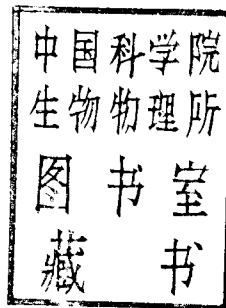 中国科学院
生物物理所
图书室
藏书